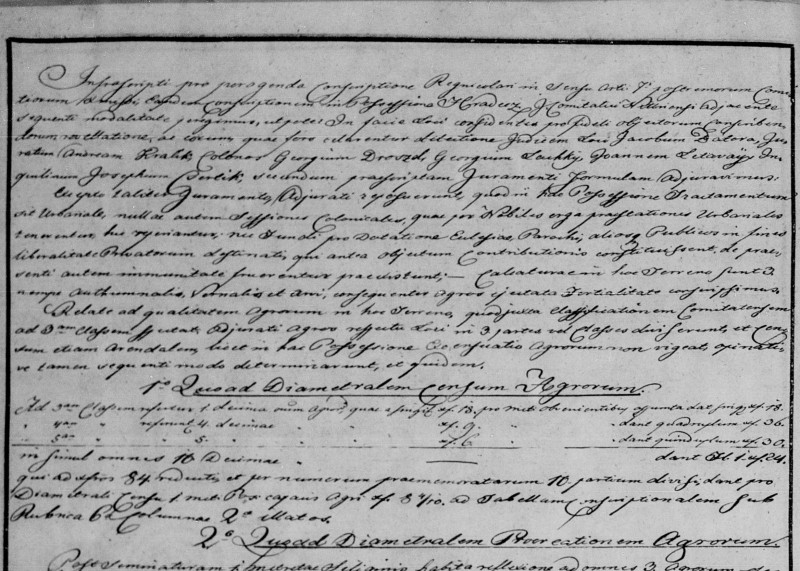 Infrascripti pro peragenda Conscriptione Regnicolari in Sensu Arti. 7i postremorum Comi
tiorum eandem Conscriptionem in Possessione Hraderz I. Comitatui Nittriensi adjacente
sequenti modalitate peregimus, utpote: In facie Loci considentes pro fideli objectorum conscriben
dorum relatione, ac eorum, quae foro clarentur detectione Judicem Loci Jacobum Datora, Ju
ratum Andream Kralik, Colonos Georgium Drozd, Georgium Leuhky, Joannem Letavay, In
quilinum Josephum Cserlik, secundum praescriptam Juramenti Formulam adjuravimus:
Excepto taliter Juramento, Adjurati responserunt, quod in hac Possessione Tractamentum
sit Urbariale, nullae autem Sessiones Colonicales, quae per Nobiles erga praestationes Urbariales
tenerentur, hic reperiantur, nec Fundi pro Dotatione Eclesiae, Parochi, aliosq Publicos in fines
liberalitate Privatorum destinati, qui antea objectum Contributionis constituissent, de prae
senti autem immunitate fruerentur praeexistunt; — Calcaturae in hoc Terreno sunt 3
nempe Authumnalis, Vernalis, et Avi, consequenter Agros ejectata Fertialitate conscripsimus.
Relate ad qualitatem Agrorum in hoc Terreno, quod juxta Classificationem Comitatensem
ad 3am Classem spectat, Adjurati Agros respectu Loci in 3 partes vel Classes diviserunt, et Cen
sum etiam Arendalem, licet in hac Possessione Exarendatio Agrorum non vigeat, opinati
ve tamen sequenti modo determinarunt, et quidem.
1o Quoad Diametralem Censum Agrorum.
Ad 3am Classem referunt 1 decima omn Agror, quae a singl xf. 18. pro meti obvenientibus assumta dat singl xf. 18.
" 4am " referunt 4 decimae " " " " xf. 9. " " dant quadruplum xf. 36.
" 5am " " 5. " " " " xf. 6. " " dant quinduplum xf. 30.
in simul omnes 10 Decimae " — dant Fl. 1. xf. 24.
qui ad xferos 84 reducti, et per numerum praememoratarum 10 partium divisi, dant pro
Diametrali Censu 1 meti Pos. capacis Agri xf. 8 4/10. ad Tabellam Conscriptionalem Sub
Rubrica 6a Columnae 2ae illatos.
2o Quoad Diametralem Procreationem Agrorum.
Post Seminaturam 1 metretae Siliginis habita reflexione ad omnes 3 Agrorum